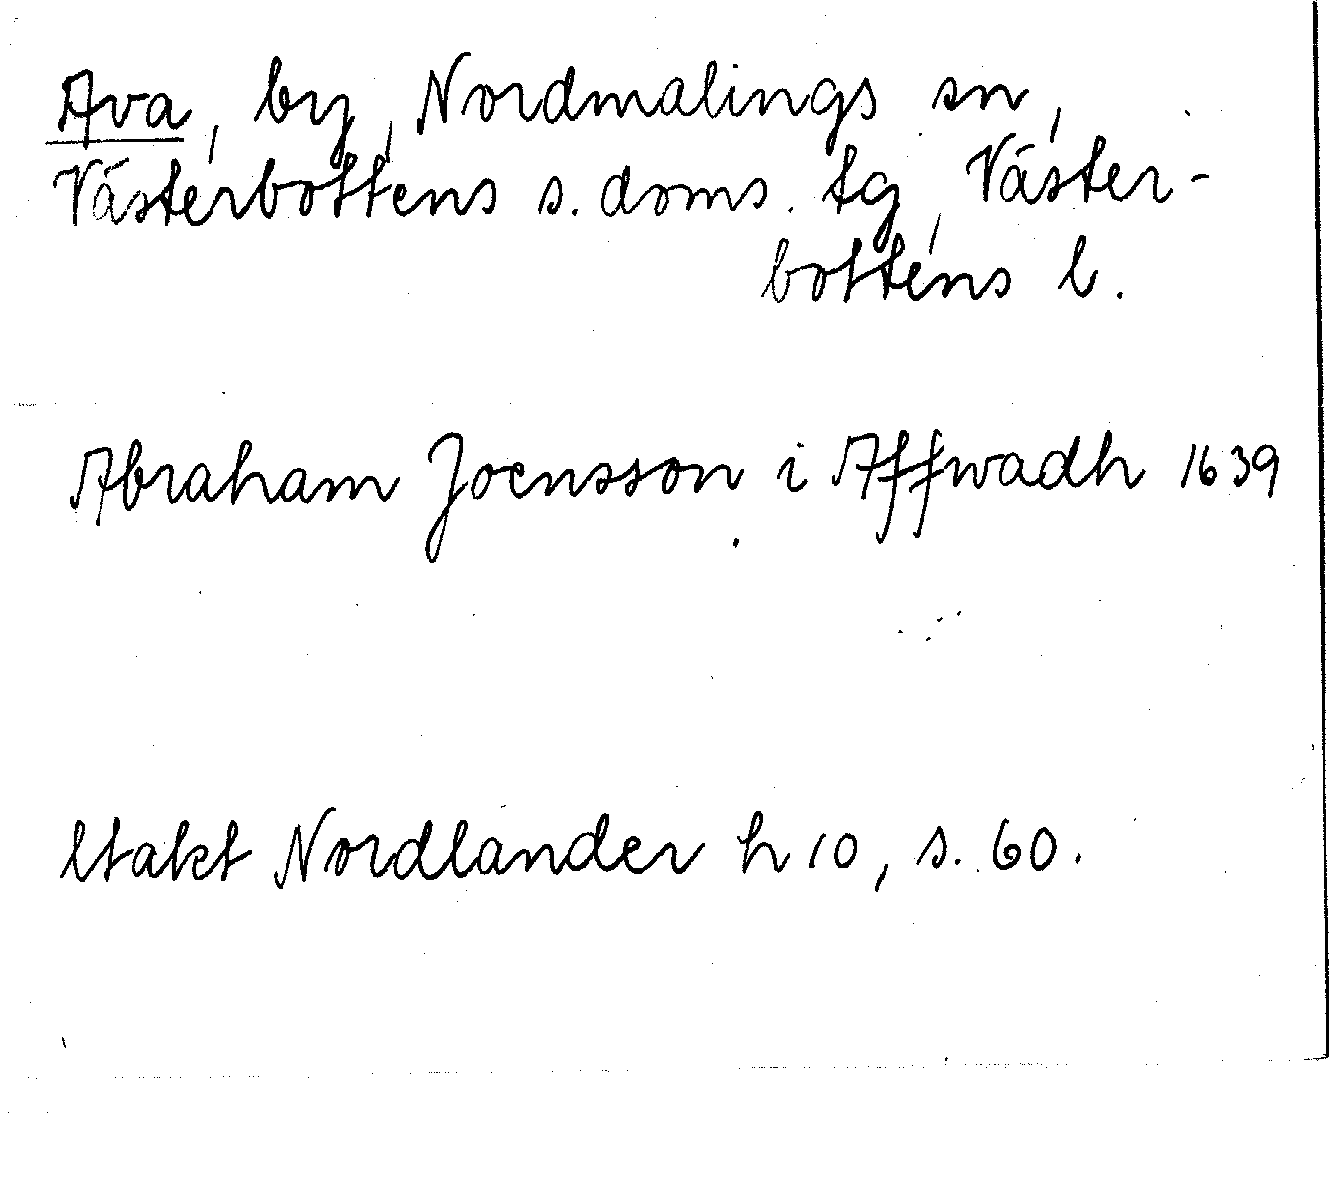 Ava, by, Nordmalings sn,
Västerbottens s. doms. tg, Väster-
bottens l.
Abraham Joensson i Affwadh 1639
ltakt Nordlander h 10, s. 60.